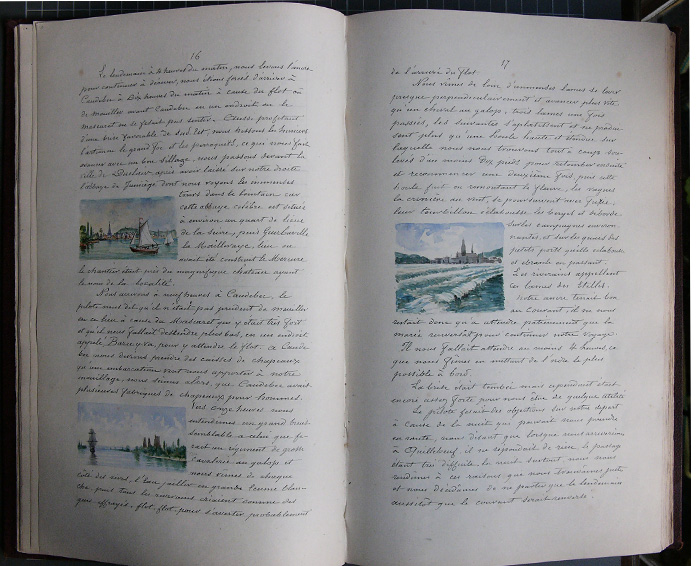 16
Le lendemain à 4 heures du matin, nous levons l'ancre
pour continuer à dériver, nous étions forcés d'arriver à
Caudebec à dix heures du matin à cause du flot ou
de mouiller avant Caudebec en un endroit ou le
mascaret ne se fasait pas sentir.
d'une brise favorable de Sud Est, nous hissons les huniers
l'artimon le grand foc et les perroquets, ce que nous fait
avec un bon sillage, nous passons devant la
ville de Duclair, après avoir laissé sur notre droite
l'abbaye de Jumiège dont nous voyons les immenses
tours dans le lointain car
cette abbaye célèbre est située
à environ un quart de lieue
de la Seine, puis Guerbaville
la Mailleraye, lieu ou
avait été construit le Mercure
le chantier était près du magnifique chateau ayant
le nom de la localité.
Nous arrivons à neuf heures à Caudebec, le
pilote nous dit qu'il n'était pas prudent de mouiller
en ce lieu à cause du Mascaret qui y était très fort
et qu'il nous fallait descendre plus bas, en un endroit
appelé pour y attendre le flot. A Caude
bec nous devions prendre des caisses de chapeaux
qu'une embarcation vint nous apporter à notre
mouillage, nous sumes alors, que Caudebec avait
plusieurs fabriques de chapeaux pour hommes.
Vers onze heures nous
entendimes un grand bruit
semblable à celui que fe-
rait un régiment de grosse
cavalerie au galop et
nous vimes de chaque
côté des rives, l'eau jaillir en grande écume blan-
che, puis tous les riverains criaient comme des
gens effrayés, flot, flot, pour s'avertir probablement
17
de l'arrivée du flot.
Nous vimes de loin d'immenses lames se lever
presque perpendiculairement et avancer plus vite
qu'un cheval au galop, trois lames une fois
passées, les suivantes s'aplatissent et ne produi-
sent plus qu'une houle haute et étendue sur
laquelle nous nous trouvons tout à coup sou-
levés d'au moins dix pieds, pour retomber ensuite
et recommencer une deuxième fois, puis cette
houle fuit en remontant le fleuve, les vagues
la croisière au vent, se poursuivent avec furie,
leur tourbillon éclabousse les berges et déborde
sur les campagnes environ-
nantes et sur les quais des
petits ports qu'elle éclabousse
et ébranle en passant.
Les riverains appellent
ces lames des Etelles.
Notre ancre tenait bon
au Courant, il ne nous
restait donc qu'à attendre patiemment que la
marée pour continuer notre voyage.
Il nous fallait attendre au moins 4 heures, ce
que nous fimes en mettant de l'ordre le plus
possible à bord.
La brise était tombée mais cependant était
encore assez forte pour nous être de quelque utilité
Le pilote faisait des objections sur notre départ
à cause de la nuit que pouvait nous prendre
en route, nous disant que lorsque nous arriverions
à Quillebeuf il ne répondait de rien, le passage
étant très difficile la nuit surtout, nous nous
rendimes à ces raisons que nous trouvâmes justes
et nous décidâmes de ne partir que le lendemain
aussitot que le courant serait renversé.